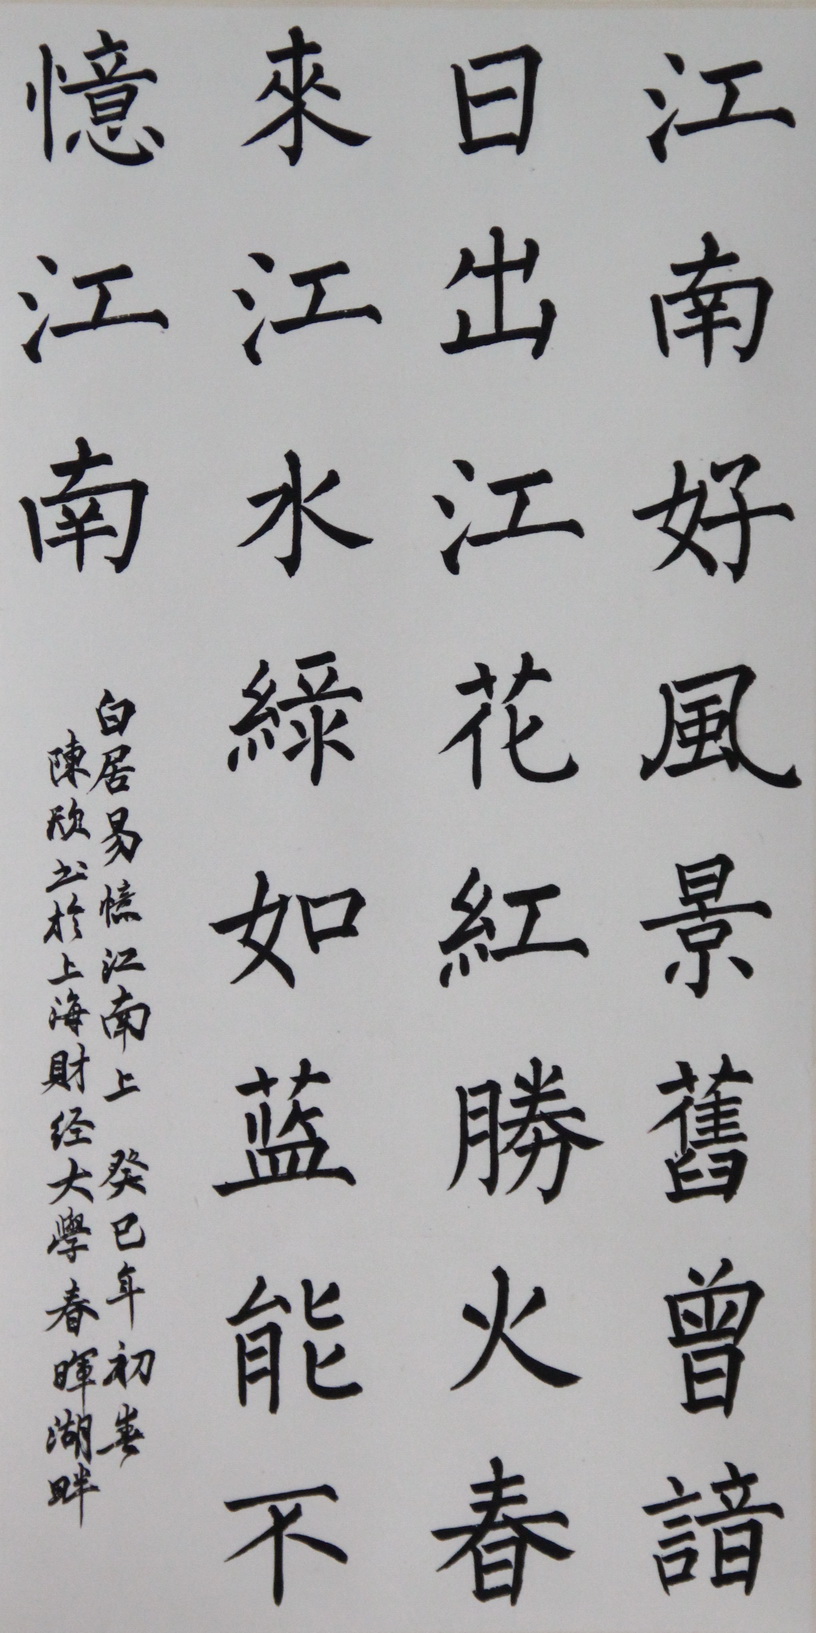 江南好風景舊曾諳
日出江花紅勝火春
來江水綠如蓝能不
憶江南
白居易憶江南上 癸巳年初春
陳欣书於上海財经大學春暉湖畔